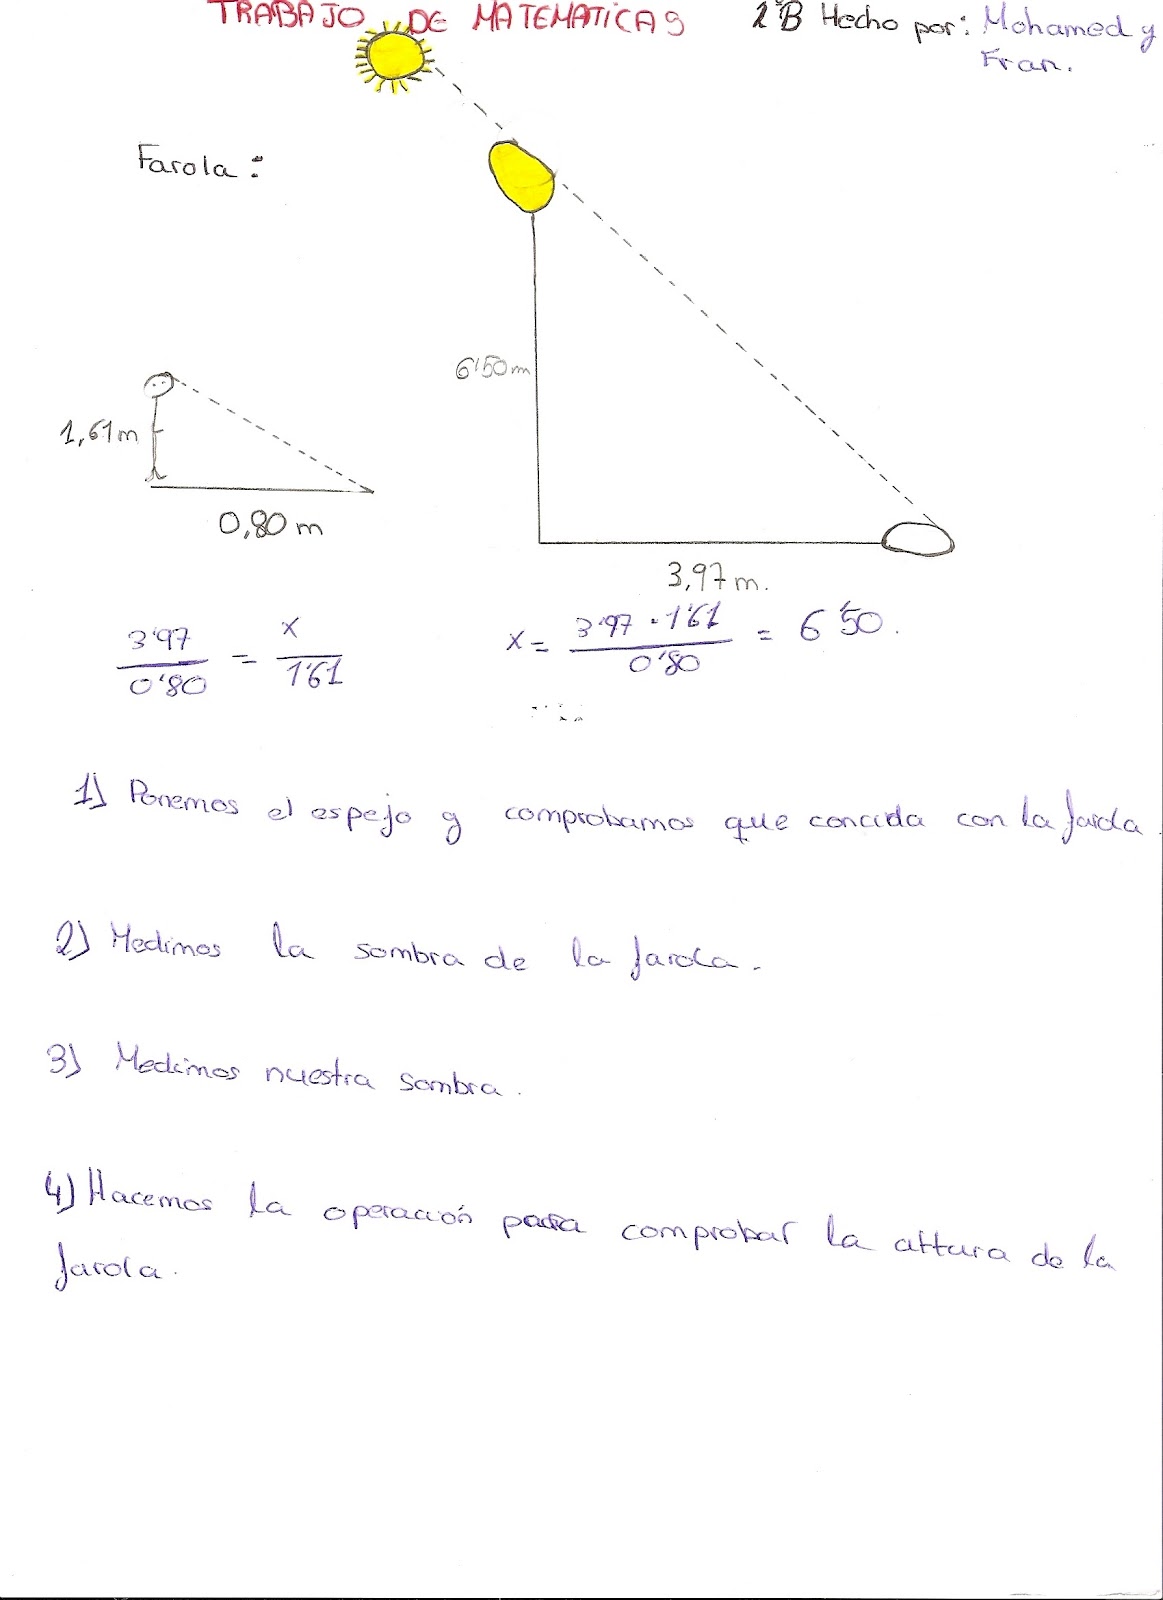 TRABAJO DE MATEMATICAS
2ºB Hecho por: Mohamed y
Fran.
Farola:
6'50 m
1,61 m
0,80 m
3,97 m.
3'97 / 0'80 = x / 1'61
x = 3'97 · 1'61 / 0'80 = 6'50.
1) Ponemos el espejo y comprobamos que concida con la farola.
2) Medimos la sombra de la farola.
3) Medimos nuestra sombra.
4) Hacemos la operación para comprobar la altura de la
farola.